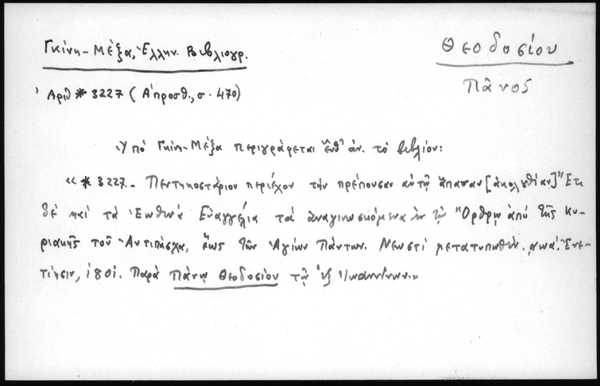 Γκίνη-Μέξα, Ἑλλην. Βιβλιογρ.
Θεοδοσίου
Πᾶνος
Ἀριθ * 3227 (Ἀπροσθ., σ. 470)
Ὑπό Γκίνη-Μέξα περιγράφεται ἐνθ' ἀν. τό βιβλίον:
«* 3227.- Πεντηκοστάριον περιέχον τήν πρέπουσαν αὐτῷ ἅπασαν [ἀκολουθίαν] Ἔτι
δέ καί τά Ἑωθινά Εὐαγγέλια τά ἀναγινωσκόμενα ἐν τῷ Ὄρθρῳ ἀπό τῆς Κυ-
ριακῆς τοῦ Ἀντιπάσχα, ἕως τῶν Ἁγίων Πάντων. Νεωστί μετατυπωθέν. ͵αωά. Ἐνε-
τίῃσιν, 1801. Παρά Πάνῳ Θεοδοσίου τῷ ἐξ Ἰωαννίνων.»